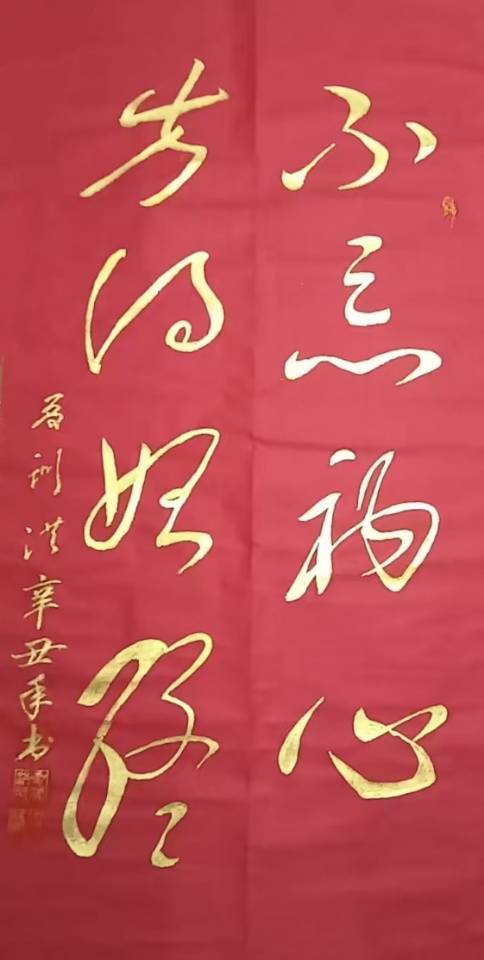 不忘初心
方得始终
训洪辛丑年书